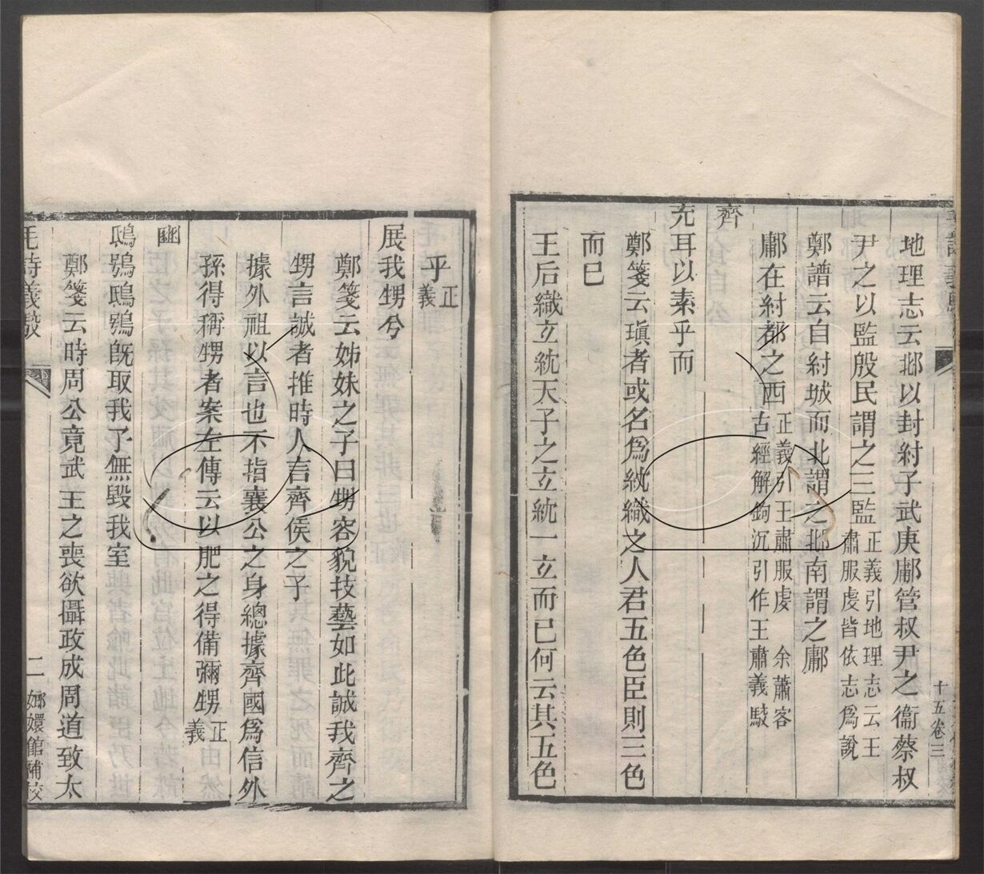 地理志云邶以封紂子武庚鄘管叔尹之衞蔡叔
尹之以監殷民謂之三監正義引地理志云王
肅服虔皆依志爲說
鄭譜云自紂城而北謂之邶南謂之鄘
鄘在紂都之西正義引王肅服虔 余蕭客
古經解鉤沉引作王肅義駮
齊
充耳以素乎而
鄭箋云瑱者或名爲紞織之人君五色臣則三色
而已
王后織玄紞天子之玄紞一玄而已何云其五色
乎正
義
展我甥兮
鄭箋云姊妹之子曰甥容貌技藝如此誠我齊之
甥言誠者推時人言齊侯之子
據外祖以言也不指襄公之身總據齊國爲信外
孫得稱甥者案左傳云以肥之得備彌甥正
義
豳
鴟鴞鴟鴞旣取我子無毀我室
鄭箋云時周公竟武王之喪欲攝政成周道致太
毛詩義駮
二
嫏嬛館補校
十五卷三